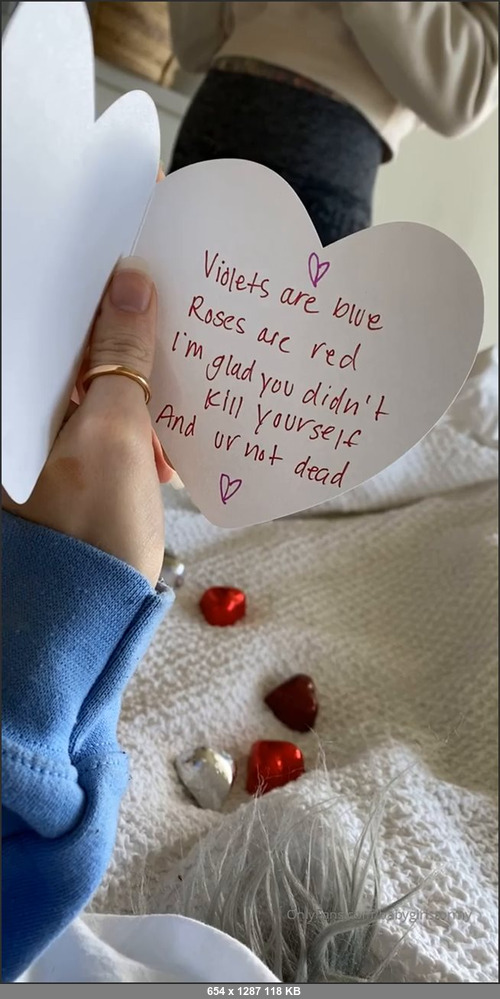 Violets are blue
Roses are red
I'm glad you didn't
kill yourself
And ur not dead
654 x 1287 118 KB